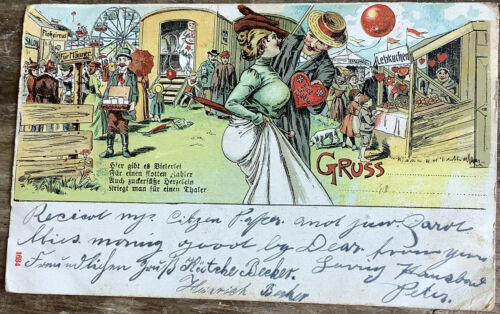 SALON
Für Männer
Lebkuchen
Hier gibt es Vielerlei
Für einen flotten Zahler
Auch zuckersüße Herzelein
Kriegt man für einen Thaler
GRUSS
my Citizen Paper and
this morning good by Dear from your
Loving Husband
Freundlichen Gruß Becker
Peter
Heinrich Becker
1684